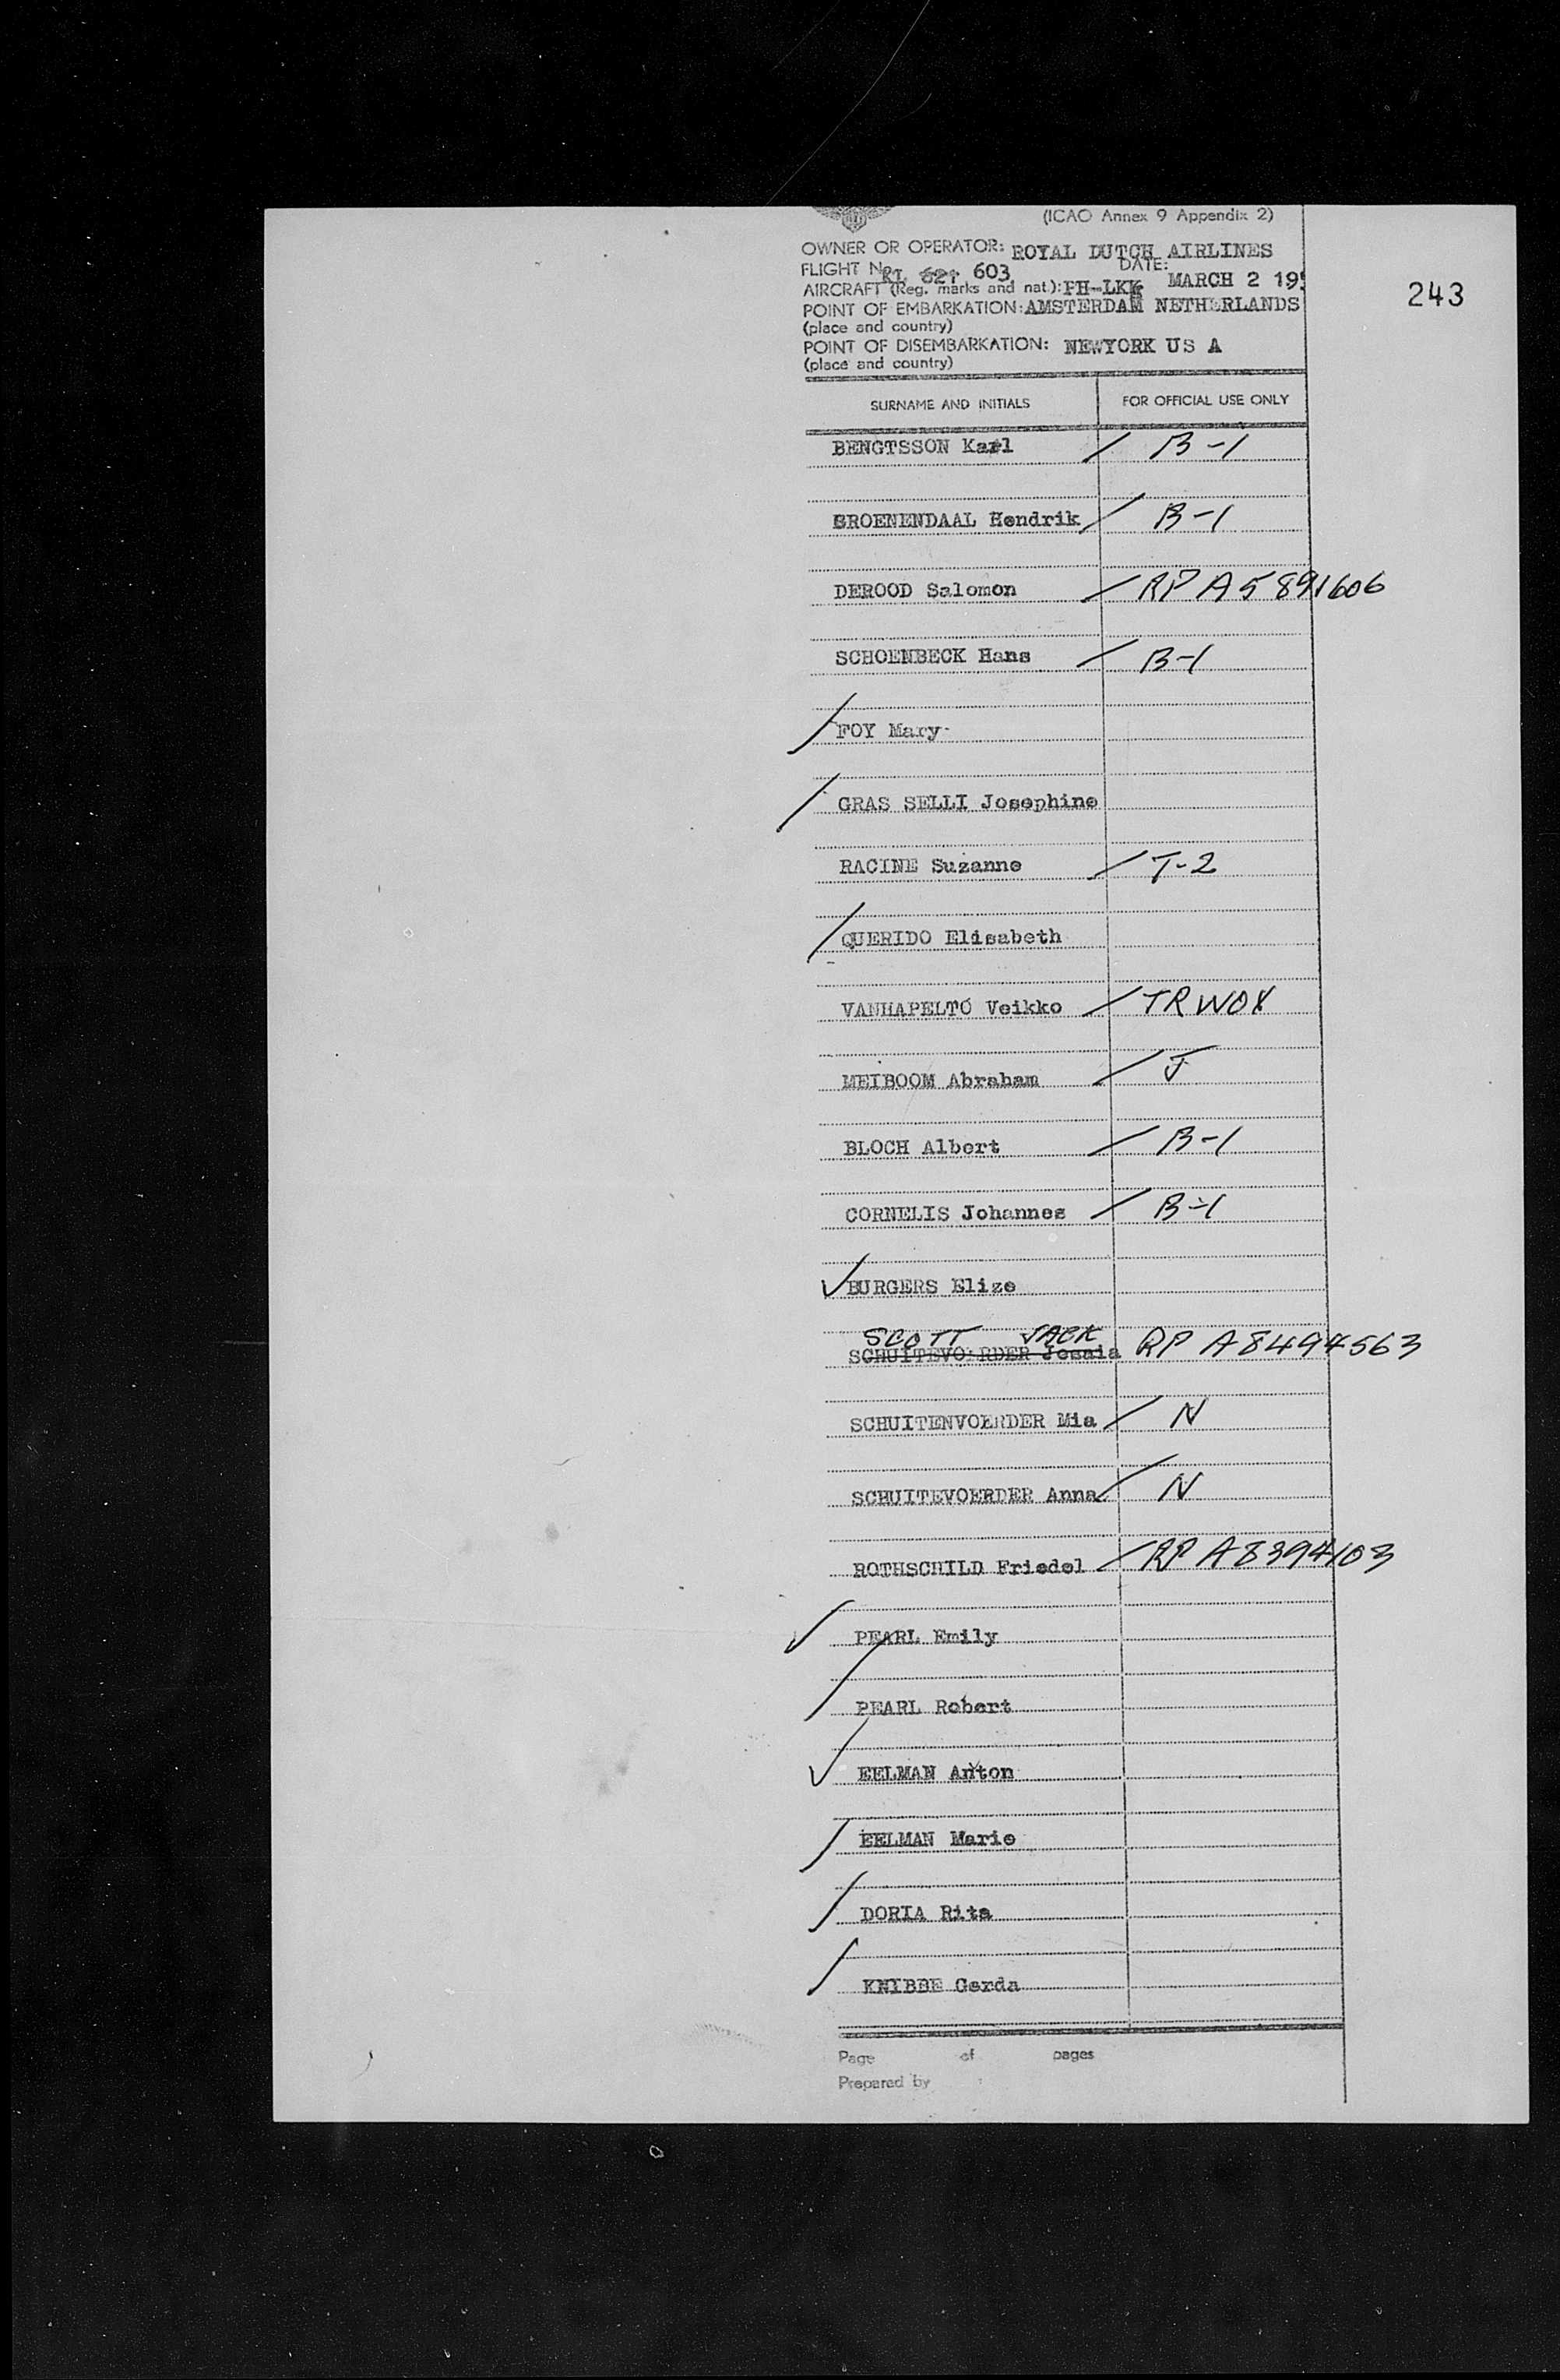 (ICAO Annex 9 Appendix 2)
OWNER OR OPERATOR: ROYAL DUTCH AIRLINES
FLIGHT No KL 621 603 DATE: MARCH 2 195
243
AIRCRAFT (Reg. marks and nat.): PH-LKK
POINT OF EMBARKATION: AMSTERDAM NETHERLANDS
(place and country)
POINT OF DISEMBARKATION: NEWYORK US A
(place and country)
SURNAME AND INITIALS FOR OFFICIAL USE ONLY
BENGTSSON Karl / B-1
BROENENDAAL Hendrik / B-1
DEROOD Salomon / RP A5891606
SCHOENBECK Hans / B-1
FOY Mary
GRAS SELLI Josephine
RACINE Suzanne / T-2
QUERIDO Elisabeth
VANHAPELTO Veikko / TRWOX
MEIBOOM Abraham / J
BLOCH Albert / B-1
CORNELIS Johannes / B-1
BURGERS Elize
SCOTT JACK
SCHUITEVOERDER Josaia RP A8494563
SCHUITENVOERDER Mia / N
SCHUITEVOERDER Anna / N
ROTHSCHILD Friedel / RP A8394103
PEARL Emily
PEARL Robert
EELMAN Anton
EELMAN Marie
DORIA Rita
KNIBBE Gerda
Page of pages
Prepared by